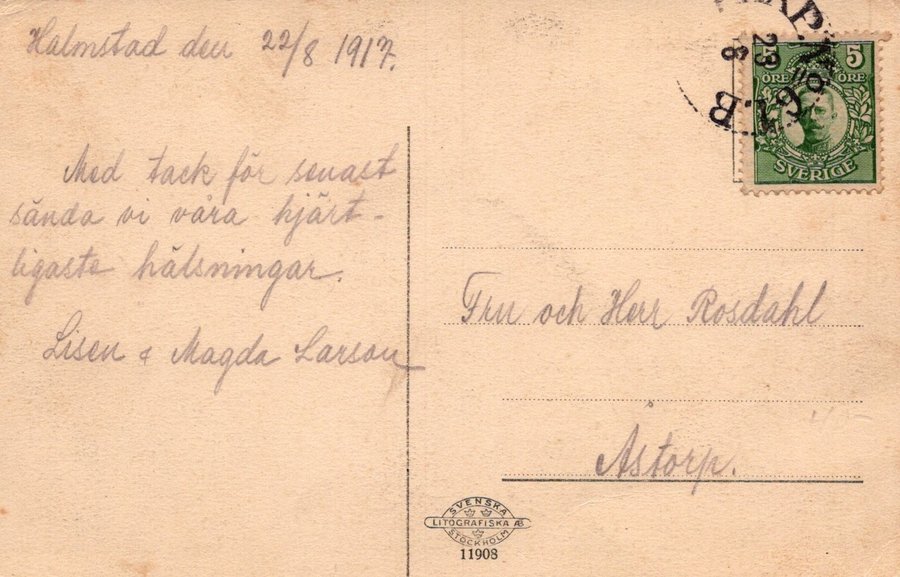 Halmstad den 22/8 1917.
Med tack för senast
sända vi våra hjärt-
ligaste hälsningar.
Lisen & Magda Larson
5 5
ÖRE ÖRE
SVERIGE
23
8
Fru och Herr Rosdahl
Åstorp.
SVENSKA
LITOGRAFISKA AB
STOCKHOLM
11908